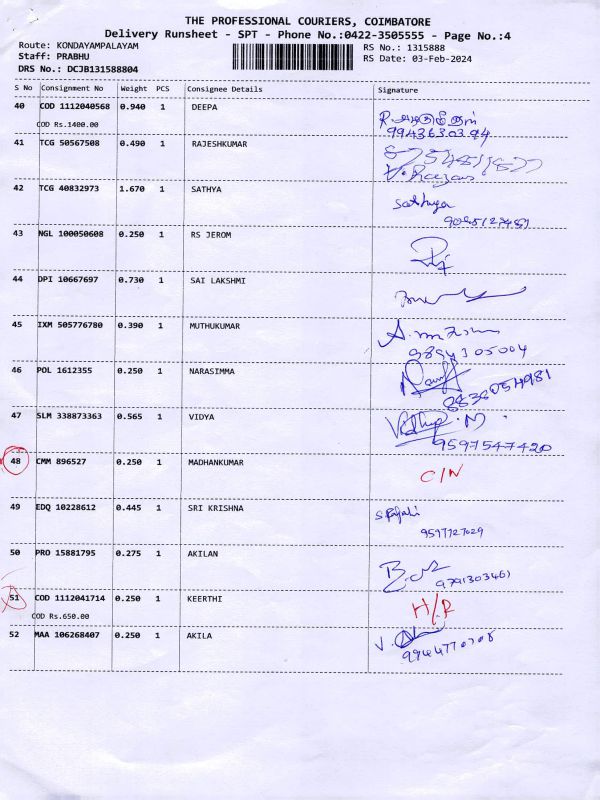 THE PROFESSIONAL COURIERS, COIMBATORE
Delivery Runsheet - SPT - Phone No.:0422-3505555 - Page No.:4
Route: KONDAYAMPALAYAM
Staff: PRABHU
DRS No.: DCJB131588804
RS No.: 1315888
RS Date: 03-Feb-2024
S No Consignment No Weight PCS Consignee Details Signature
40 COD 1112040568 0.940 1 DEEPA
COD Rs.1400.00
9943630394
41 TCG 50567508 0.490 1 RAJESHKUMAR
42 TCG 40832973 1.670 1 SATHYA Sathya
43 NGL 100050608 0.250 1 RS JEROM
44 DPI 10667697 0.730 1 SAI LAKSHMI
45 IXM 505776780 0.390 1 MUTHUKUMAR
9894305004
46 POL 1612355 0.250 1 NARASIMMA
47 SLM 338873363 0.565 1 VIDYA
9597547420
48 CMM 896527 0.250 1 MADHANKUMAR C/N
49 EDQ 10228612 0.445 1 SRI KRISHNA
9597727029
50 PRO 15881795 0.275 1 AKILAN
51 COD 1112041714 0.250 1 KEERTHI H/R
COD Rs.650.00
52 MAA 106268407 0.250 1 AKILA